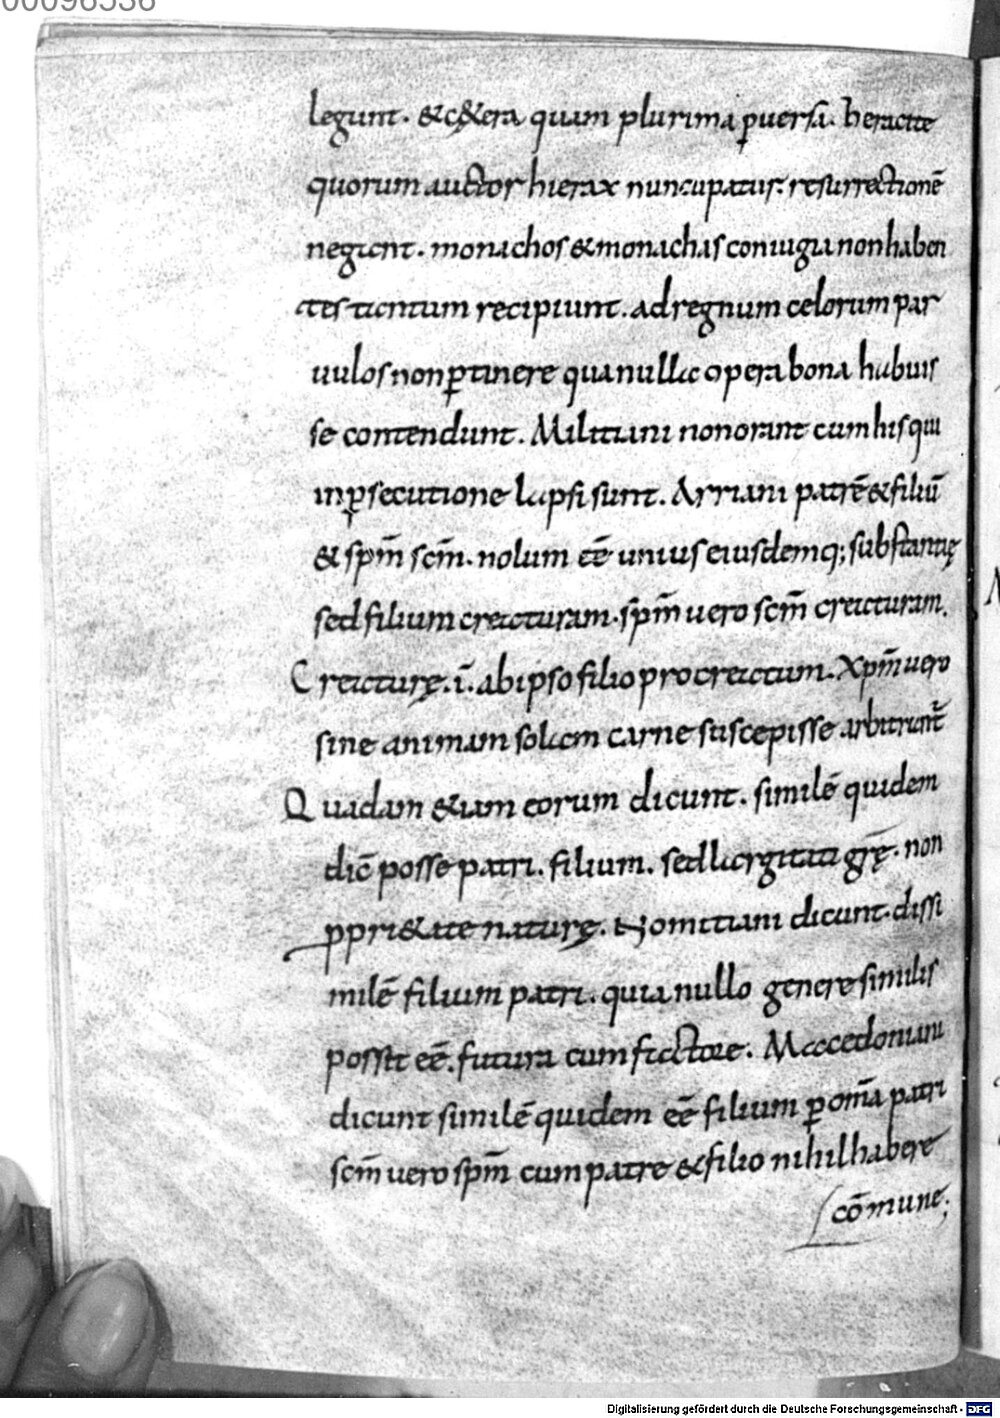 00096536
legunt. &c&era quam plurima ꝑuersa. heracite
quorum auctor hierax nuncupatur. resurrectionē
negant. monachos & monachas coniugia non haben
tes tantum recipiunt. ad regnum celorum par
uulos non ꝑtinere quia nulla opera bona habuis
se contendunt. Militiani non orant cum his qui
in ꝑsecutione lapsi sunt. Arriani patrē & filiū
& spm̄ scm̄. nolum eē unius eiusdemq; substantię
sed filium creaturam. spm̄ uero scm̄ creaturam.
Creaturę .i. ab ipso filio procreatum. Xpm̄ uero
sine animam solam carne suscepisse arbitrant̄
Quadam &iam eorum dicunt. similē quidem
dic̄ posse patri. filium. sed largitati grę̄. non
ꝓpri&ate naturę. Nomitiani dicunt. dissi
milē filium patri. quia nullo genere similis
possit eē. futura cum factore. Macedoniani
dicunt similē quidem eē filium ꝑ oma̅ patri
scm̄ uero spm̄ cum patre & filio nihil habere
cōmune;
Digitalisierung gefördert durch die Deutsche Forschungsgemeinschaft - DFG